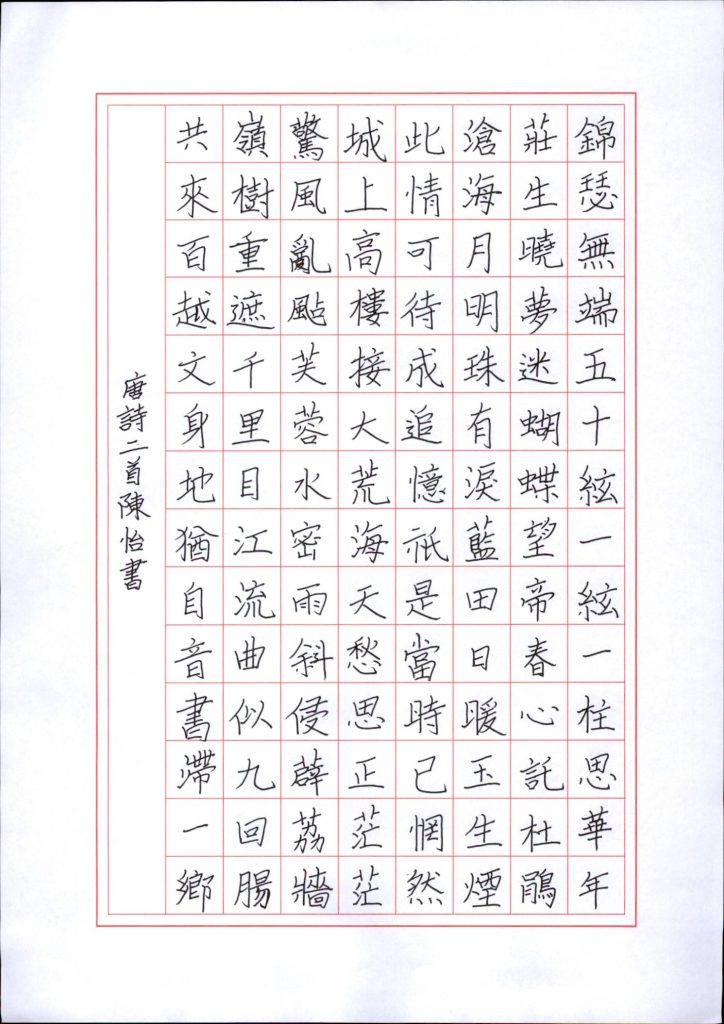 錦瑟無端五十絃一絃一柱思華年
莊生曉夢迷蝴蝶望帝春心託杜鵑
滄海月明珠有淚藍田日暖玉生煙
此情可待成追憶祇是當時已惘然
城上高樓接大荒海天愁思正茫茫
驚風亂颭芙蓉水密雨斜侵薜荔牆
嶺樹重遮千里目江流曲似九回腸
共來百越文身地猶自音書滯一鄉
唐詩二首陳怡書